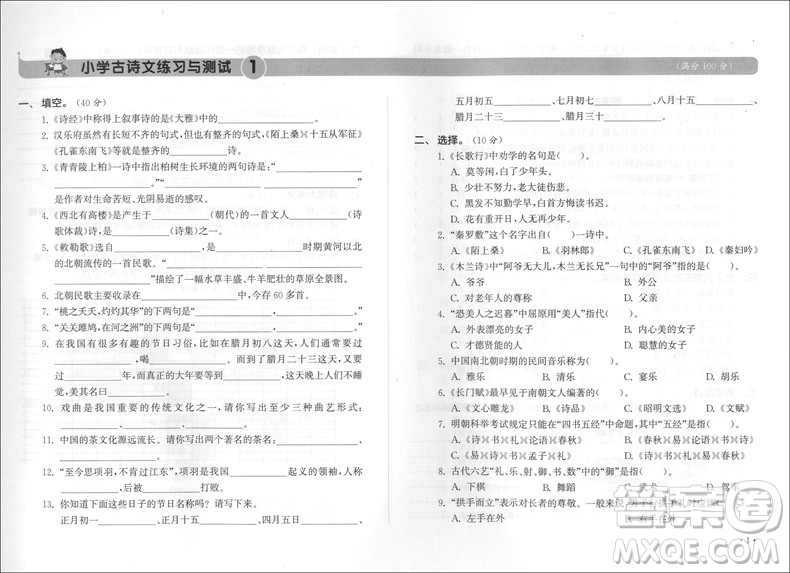 小学古诗文练习与测试 1
(满分100分)
一、填空。(40分)
1.《诗经》中称得上叙事诗的是《大雅》中的____、____、____。
2. 汉乐府虽然有长短不齐的句式,但也有整齐的句式,《陌上桑》《十五从军征》
《孔雀东南飞》等就是整齐的____。
3.《青青陵上柏》一诗中指出柏树生长环境的两句诗是:“____
____。”“____,____。”
是作者对生命苦短、光阴易逝的感叹。
4.《西北有高楼》是产生于____(朝代)的一首文人____(诗
歌体裁)诗,是____(诗集)之一。
5.《敕勒歌》选自____,是____时期黄河以
北的北朝流传的一首民歌。____,____
____”描绘了一幅水草丰盛、牛羊肥壮的草原全景图。
6. 北朝民歌主要收录在____中,今存60多首。
7. “桃之夭夭,灼灼其华”的下两句是“____,____”。
8. “关关雎鸠,在河之洲”的下两句是“____,____”。
9. 在我国有很多有趣的节日习俗,比如在腊月初八这一天,人们就要过
____,喝____。而到了腊月二十三这天,
又要过____。大年除夕这一晚,人们是整夜不睡觉
的,美其名曰____。
10. 戏曲是我国重要的传统文化之一,请你写出至少三种曲艺形式:
____、____、____。
11. 中国的茶文化源远流长。请你写出几个著名的茶名:____、
____、____、____。
12. “至今思项羽,不肯过江东”,项羽是我国____起义的领袖,
最后被____打败。
13. 你知道下面这些日子的节日名称吗?请你写下来。
正月初一____、正月十五____、四月五日____、
五月初五____、七月初七____、八月十五____、
腊月二十三____、腊月三十____。
二、选择。(10分)
1.《长歌行》中劝学的名句是( )。
A. 莫等闲,白了少年头。
B. 少壮不努力,老大徒伤悲。
C. 黑发不知勤学早,白首方悔读书迟。
D. 花有重开日,人无再少年。
2. “秦罗敷”这个名字出自( )一诗中。
A.《陌上桑》 B.《羽林郎》 C.《孔雀东南飞》 D.《秦妇吟》
3.《木兰诗》中“阿爷无大儿,木兰无长兄”一句中的“阿爷”指的是( )。
A. 爷爷 B. 外公
C. 对老年人的尊称 D. 父亲
4. “恐美人之迟暮”中屈原用“美人”指代( )。
A. 外表漂亮的女子 B. 内心美的女子
C. 有政治才能的人 D. 聪慧的女子
5. 中国南北朝时期的民间音乐称为( )。
A. 雅乐 B. 清乐 C. 俗乐 D. 胡乐
6.《长门赋》最早见于南朝文人编著的( )。
A.《文心雕龙》 B.《诗品》 C.《昭明文选》 D.《文赋》
7. 明朝科举考试以“四书五经”为指导,其中“五经”是指( )。
A.《诗》《书》《礼》《论语》《春秋》 B.《春秋》《易》《论语》《书》《诗》
C.《诗》《易》《书》《孟子》《礼》 D.《诗》《书》《礼》《易》《春秋》
8. 古代六艺“礼、乐、射、御、书、数”中的“御”是指( )。
A. 下棋 B. 舞蹈 C. 武术 D. 驾车
9. “拱手而立”表示对长者的尊敬。一般来说,男子行拱手礼时应该
A. 左手在外 B. 右手在外
答案圈
MXQE.COM
·1·